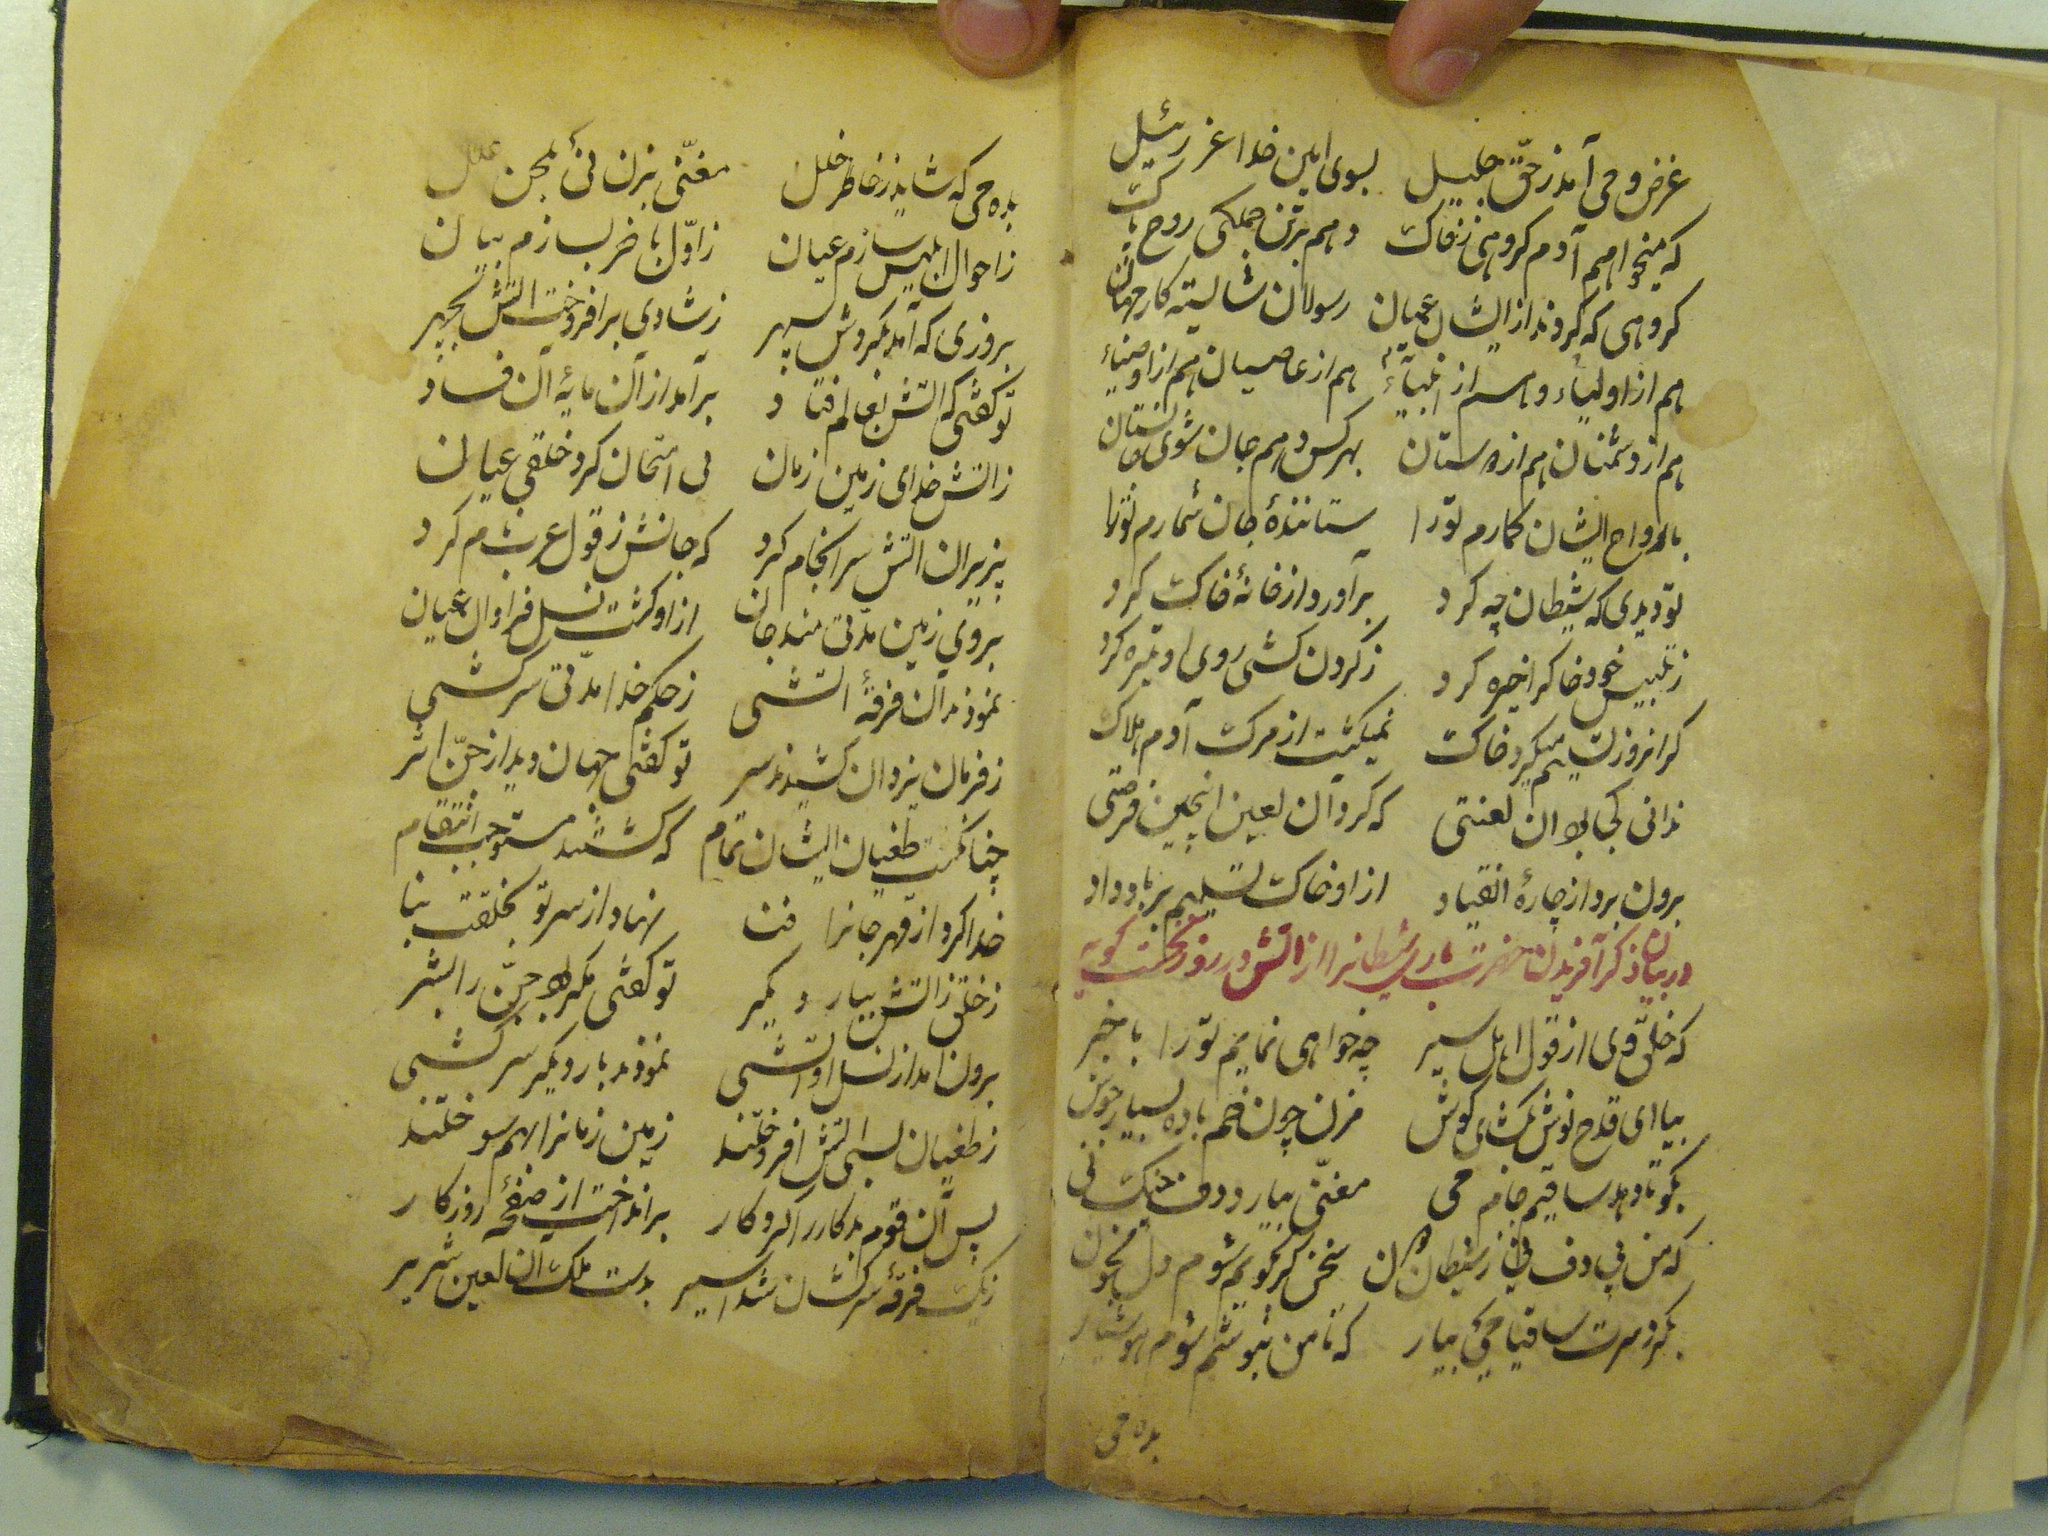 غرض وحی آمد ز حقّ جلیل بسوی امین خدا عزرئیل
که میخواهم آدم کروهی ز خاک دهم برتن جملکی روح پاک
کروهی که کردند از ایشان عیان رسولان شایسته کار جهان
هم از اولیاء و هم از انبیاء هم از عاصیان هم از اوصیاء
هم از دشمنان هم از دوستان بهر کس دهم جان شوی جانستان
بارواح ایشان کمارم تورا ستانندهٔ جان شمارم تورا
تو دیدی که شیطان چه کرد برآورد از خانهٔ خاک کرد
ز تلبیس خود خاک را خیره کرد ز کردن کشی روی او تیره کرد
کر انروز تسلیم میکرد خاک نمیکشت از مرک آدم هلاک
ندانی کجا بود ان لعنتی که کرد آن لعین اینچنین فرصتی
برون برد از چارهٔ انقیاد از او خاک تسلیم بر باد داد
در بیان ذکر آفریدن حضرت باری شیطانرا از اتش در روز نخست کوید
که خلّاقی از قول اهل سیر چه خواهی نمایم تورا با خبر
بیا ای قدح نوش بکشای کوش مزن چون خم باده بسیار جوش
بکو تا دهد ساقیم جام می مغنّی بیارد دف و چنک و نی
که من بی دف و نی ز شیطان دون سخن کر بکویم شوم دل بخون
بکردسرت ساقیا می بیار که تا من بنوشم شوم هوشیار
بده می
بده می که شاید ز خاطر خلل مغنّی بزن نیٔ بلحن
ز احوال ابلیس سازم عیان ز اوّل باخر بسازم بیان
بروزی که آمد بکردش سپهر ز شادی برافروخت اتش بچهر
تو کفتی که اتش بعالم فتاد برآمد از آن مایهٔ آن فساد
ز اتش خدای زمین زمان پی امتحان کرد خلقی عیان
پریران اتش سرانجام کرد که جانش ز قول عرب نام کرد
بروی زمین مدّتی مند جان از او کشت نسل فراوان عیان
نمودند آن فرقهٔ اتشی ز حکم خدا مدّتی سرکشی
ز فرمان یزدان کشیدند سر تو کفتی جهان دید از جنّ اثر
چنان کشت طغیان ایشان تمام که کشتند مستوجب انتقام
خدا کرد از قهر جانرا فنا نهاد از سر تو بخلقت بنا
ز خلق ز اتش بیار دیکر تو کفتی مکر بود جنّ را بشر
برون امد از نسل او اتشی نمودند بار دیکر سرکشی
ز طغیان بسی اتش افروختند زمین زمانرا بهم سوختند
پس آن قوم بدکار را کردکار برانداخت از صفحهٔ روزکار
ز یک فرقهٔ سرکشان شد اسیر بدست ملک ان لعین شریر